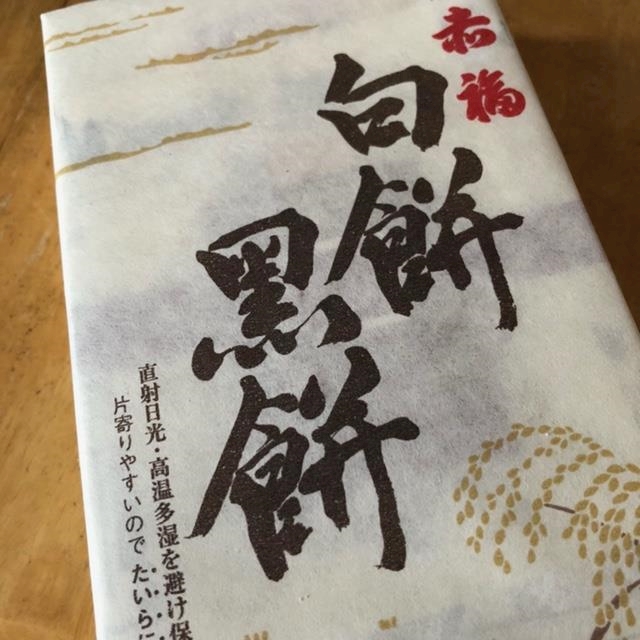 赤福
白餅
黑餅
直射日光・高温多湿を避け保
片寄りやすいので たいらに